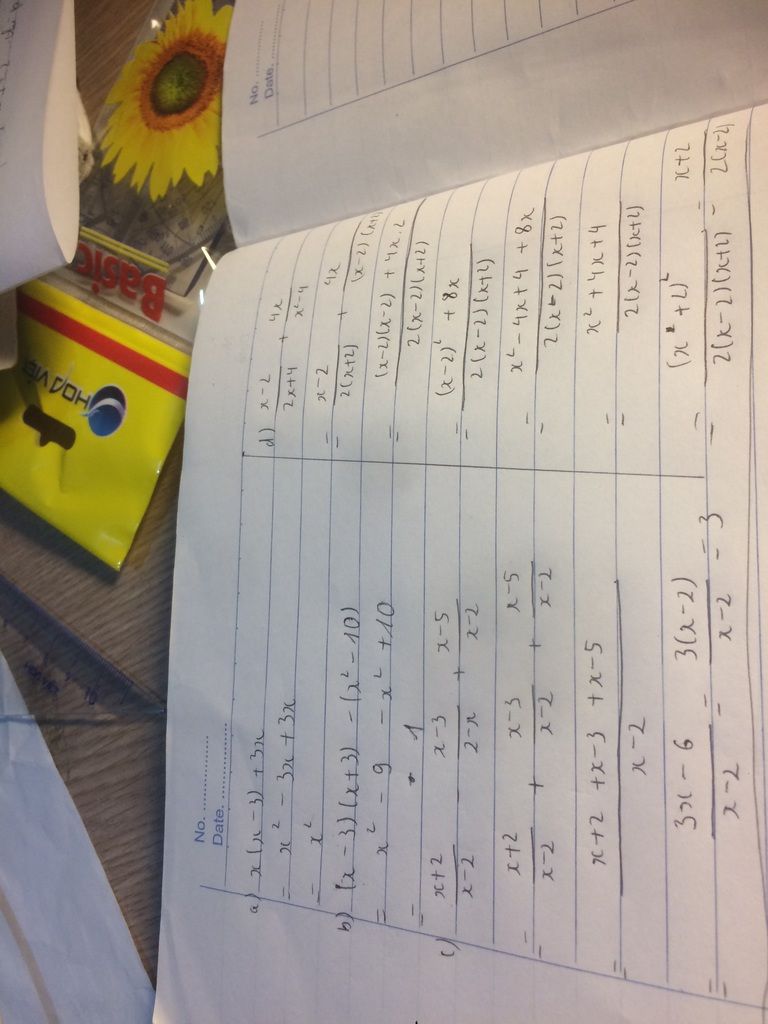 No. ..........
Date. ..........
a) x(x-3) + 3x
= x² - 3x + 3x
= x²
b) (x-3)(x+3) - (x² - 10)
= x² - 9 - x² + 10
= 1
c) \frac{x+2}{x-2} - \frac{x-3}{2-x} + \frac{x-5}{x-2}
= \frac{x+2}{x-2} + \frac{x-3}{x-2} + \frac{x-5}{x-2}
= \frac{x+2 + x-3 + x-5}{x-2}
= \frac{3x-6}{x-2} = \frac{3(x-2)}{x-2} = 3
d) \frac{x-2}{2x+4} + \frac{4x}{x²-4}
= \frac{x-2}{2(x+2)} + \frac{4x}{(x-2)(x+2)}
= \frac{(x-2)(x-2) + 4x.2}{2(x-2)(x+2)}
= \frac{(x-2)² + 8x}{2(x-2)(x+2)}
= \frac{x² - 4x + 4 + 8x}{2(x-2)(x+2)}
= \frac{x² + 4x + 4}{2(x-2)(x+2)}
= \frac{(x+2)²}{2(x-2)(x+2)} = \frac{x+2}{2(x-2)}
No. ..........
Date. ..........
Basic
HOA VIET